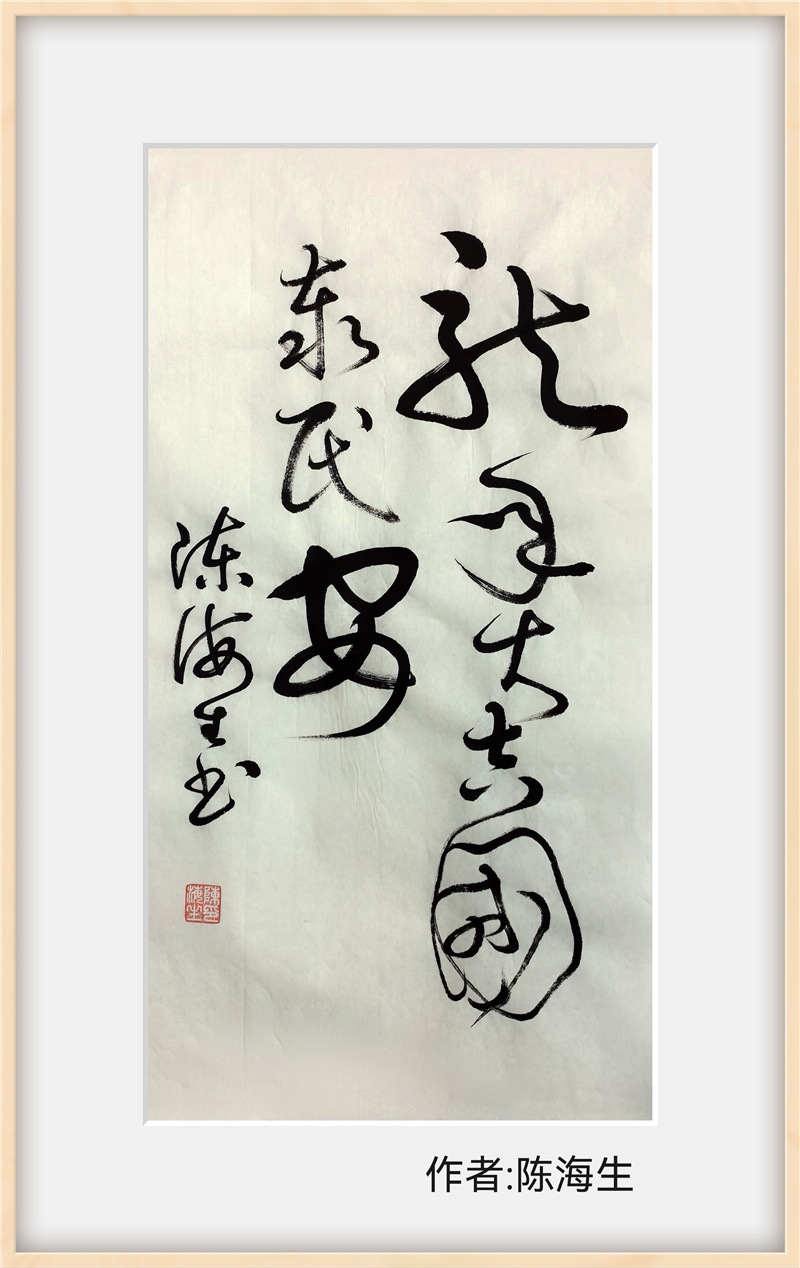 龍年大吉國
泰民安
陈海生书
陳海生印
作者:陈海生